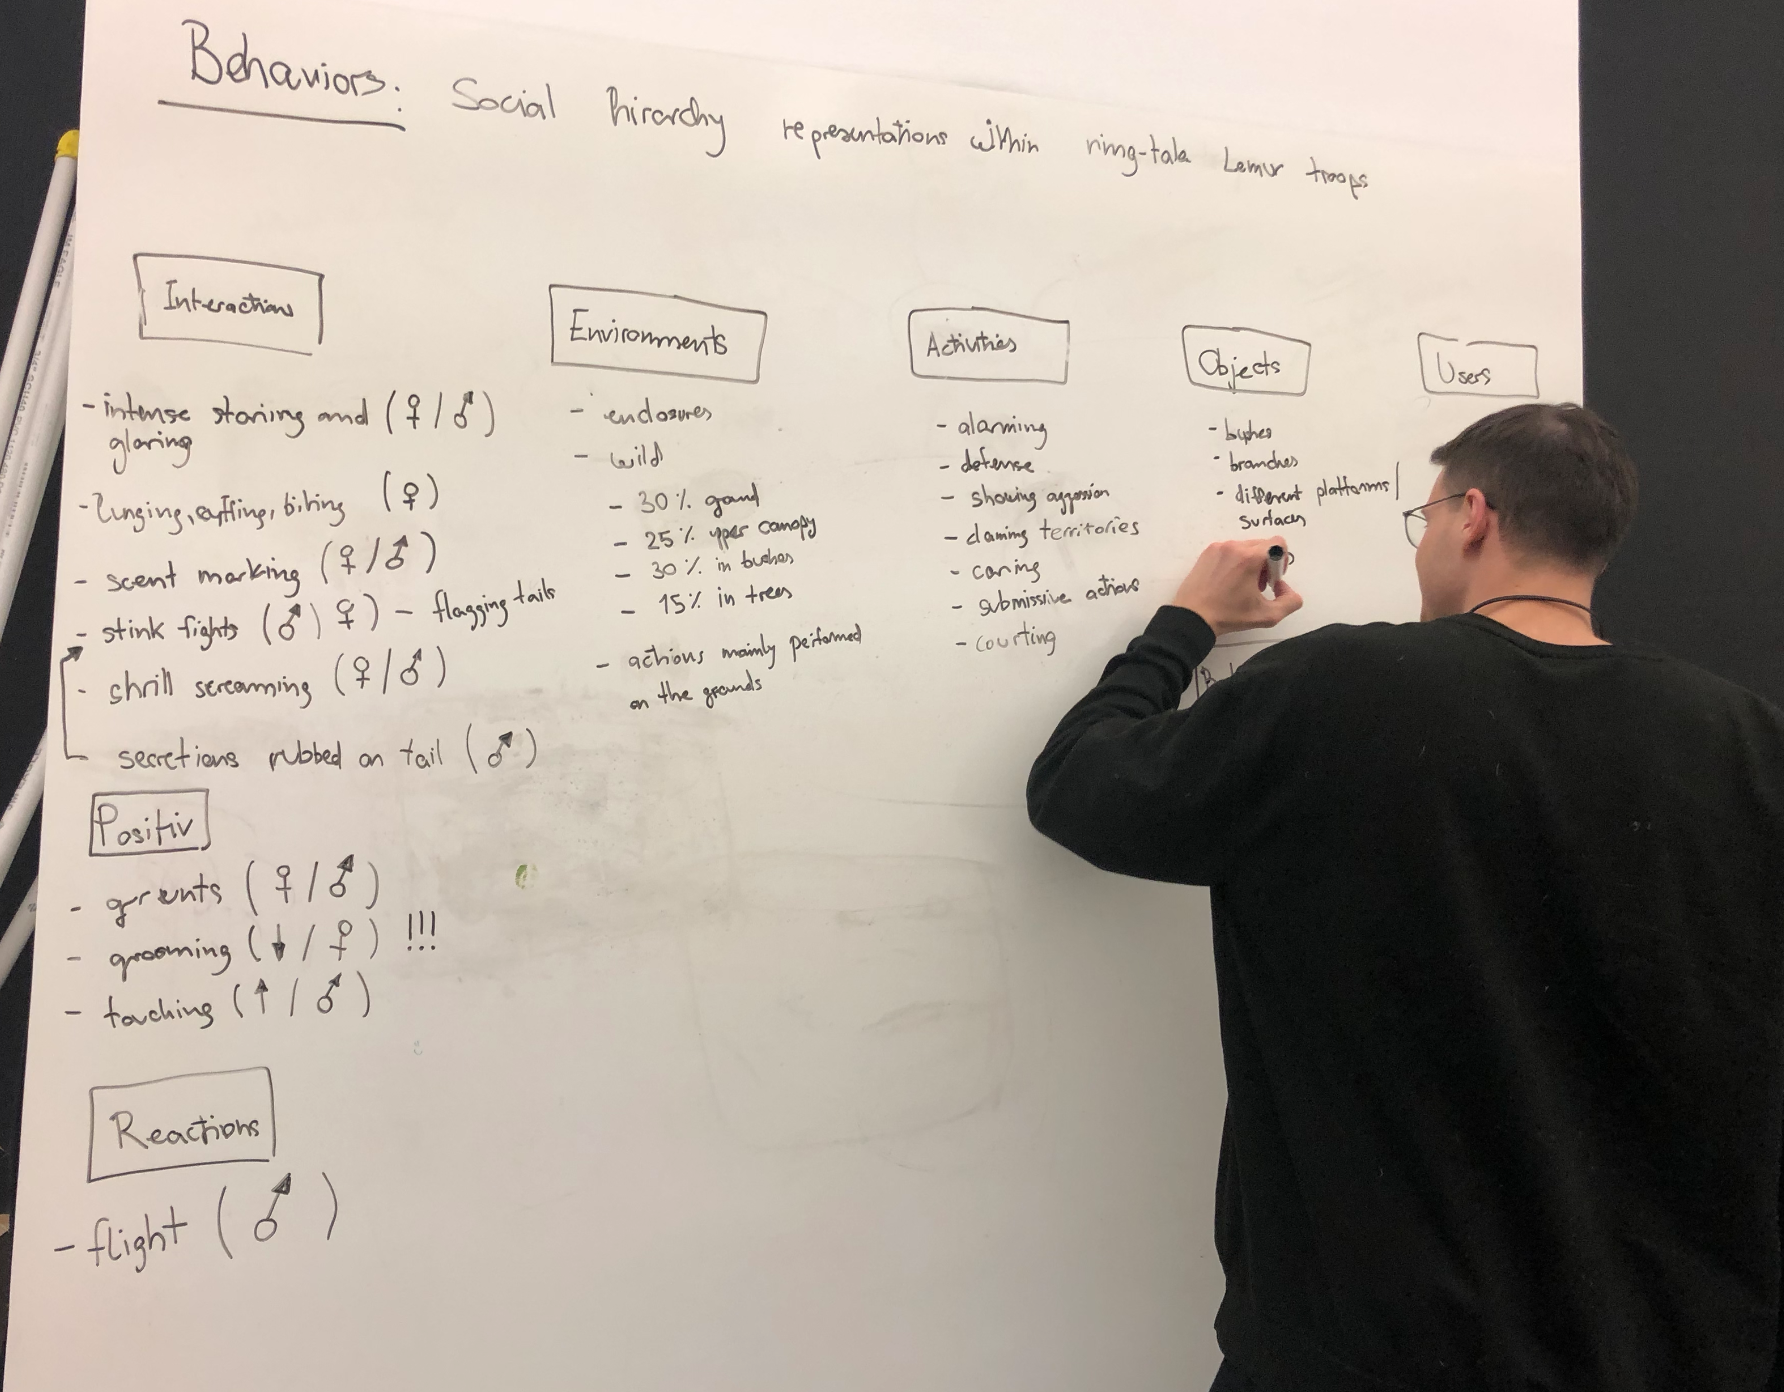 Behaviors: Social hirarchy representations within ring-tale Lemur troops
Interactions
- intense staring and (♀/♂)
glaring
- lunging, cuffing, biting (♀)
- scent marking (♀/♂)
- stink fights (♂) ♀) - flagging tails
- shrill screaming (♀/♂)
secretions rubbed on tail (♂)
Positiv
- grunts (♀/♂)
- grooming (↓/♀) !!!
- touching (↑/♂)
Reactions
- flight (♂)
Environments
- enclosures
- wild
- 30%
- 25% upper canopy
- 30% in bushes
- 15% in trees
- actions mainly performed
on the grounds
Activities
- alarming
- defense
- showing aggression
- claiming territories
- caring
- submissive actions
- courting
Objects
- bushes
- branches
- different platforms/
surfaces
Users